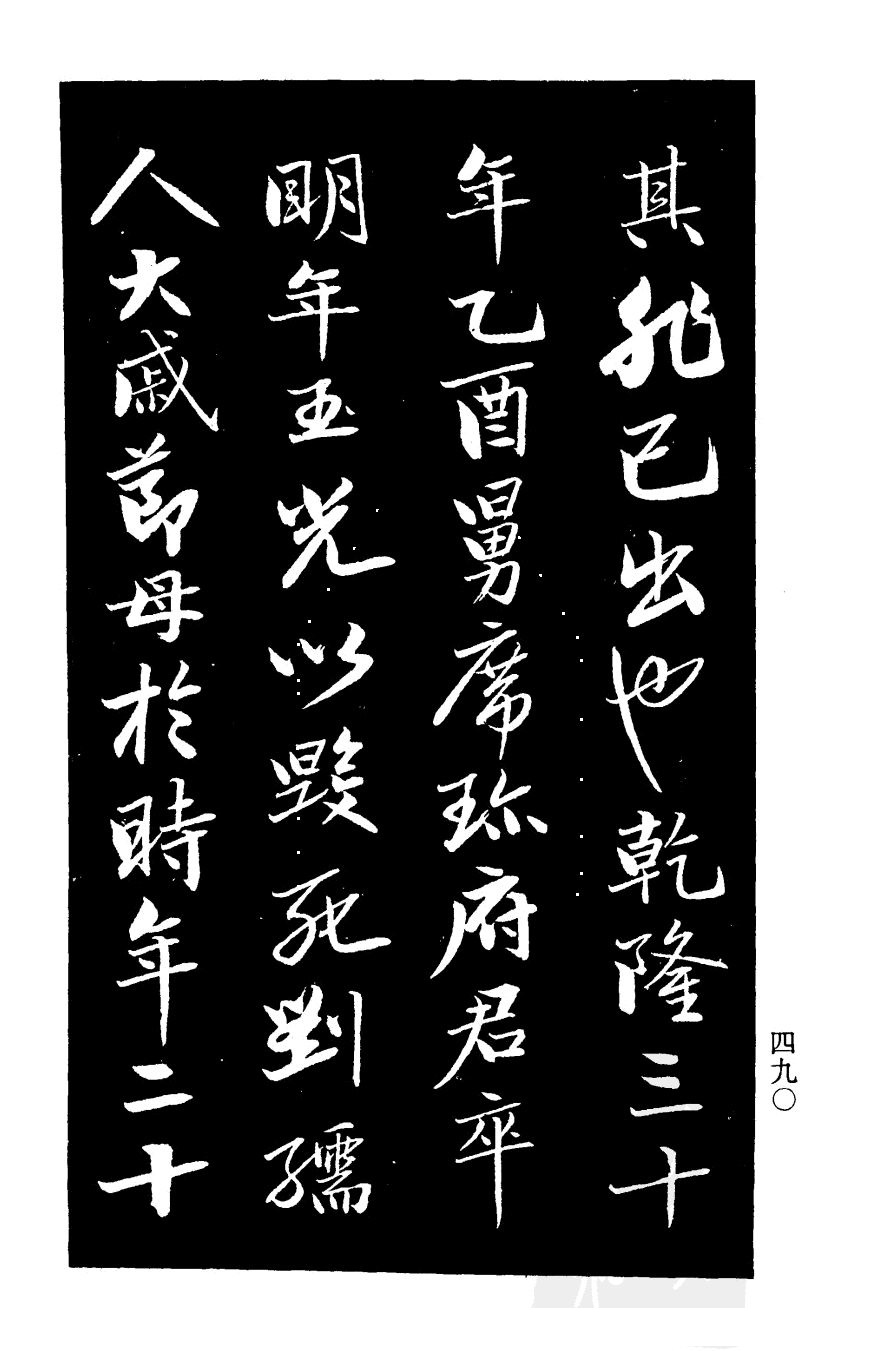 其非已出也乾隆三十
年乙酉舅席珍府君卒
明年玉光以毁死劉孺
人大戚節母於時年二十
四九〇